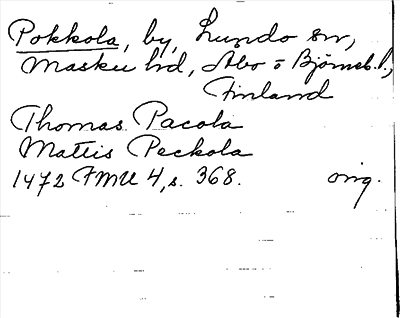 Pokkola, by, Lundo sn,
Masku hd, Åbo o Björneb. l.,
Finland
Thomas Pacola
Mattis Peckola
1472 FMU 4, s. 368. orig.